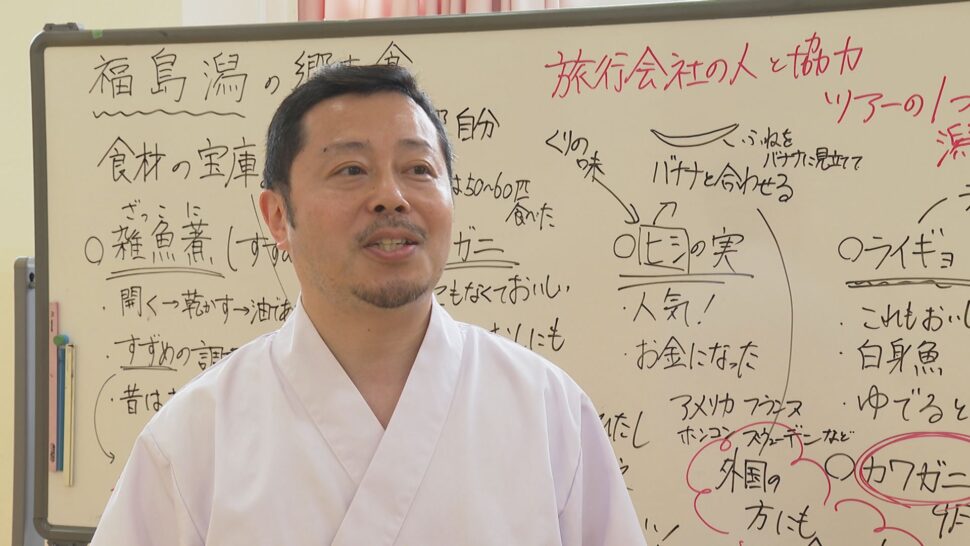 福島潟の郷土食
旅行会社の人と協力
ツアーの1つ
食材の宝庫
自分
は50〜60匹
食べた
ざっこに
○雑魚煮(すずめ
・開く→乾かす→油であ
・すずめの調
・昔は
ガニ
もなくておいしい
にも
くりの
味
ふねを
バナナに見立てて
バナナと合わせる
○ヒシの実
・人気!
・お金になった
アメリカ フランス
ホンコン スウェーデンなど
外国の
方にも
○ライギョ
・これもおいし
・白身魚
・ゆでると
○カワガニ